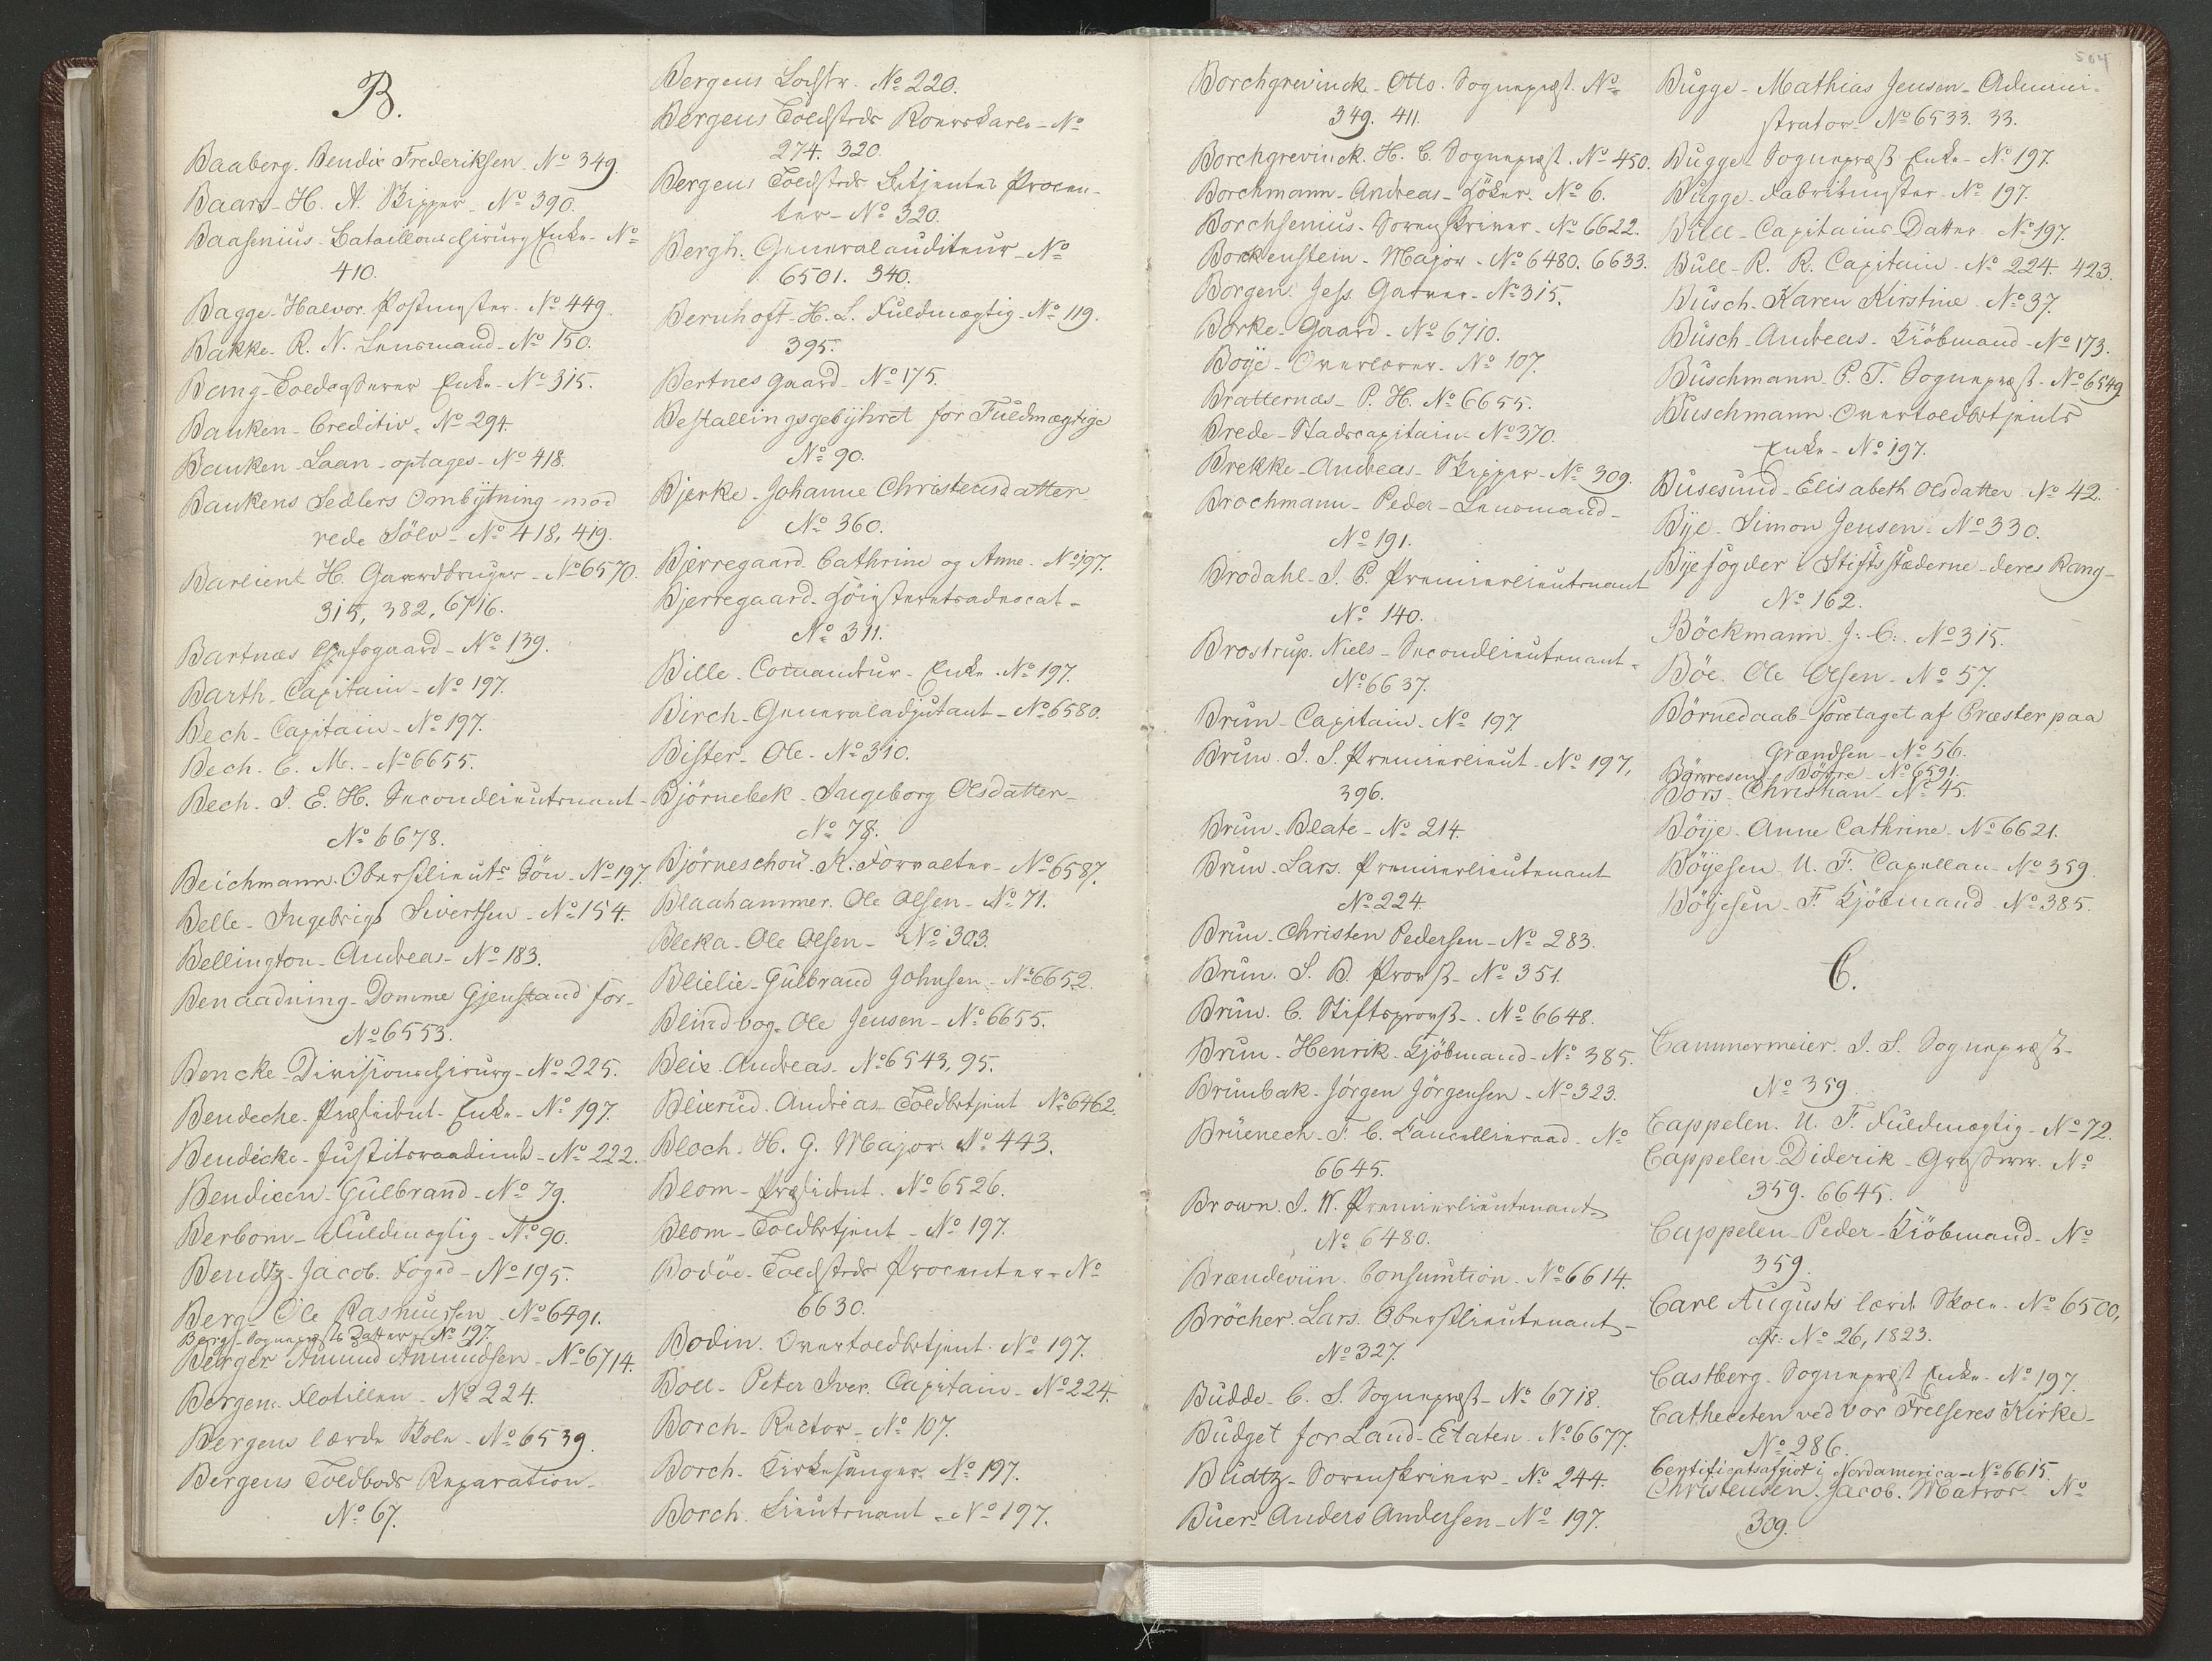 B.
Baaberg. Bendix Frederiksen. No 349.
Baars. H. A. Skipper. No 390.
Baasenius. Bataillonschirurg Enke. No
410.
Bagge. Halvor. Postmester. No 449.
Bakke. R. N. Lensmand. No 150.
Bang. Toldcasserer Enke. No 315.
Banken. Creditiv. No 294.
Banken. Laan. optages. No 418.
Bankens Sedlers Ombÿtning mod
rede Sölv. No 418, 419.
Barlient H. Gaardbruger. No 6570.
315, 382, 6716.
Bartnæs Chefsgaard. No 139.
Barth. Capitain. No 197.
Bech. Capitain. No 197.
Bech. C. M. No 6655.
Bech. J. E. H. Secondlieutenant.
No 6678.
Beichmann. Oberstlieuts Sön. No 197.
Belle. Ingebrigt Sivertsen. No 154.
Bellington. Andreas. No 183.
Benaadning. Domme Gjenstand for.
No 6553.
Bencke. Divisionschirurg. No 225.
Bendeche. Præsident. Enke. No 197.
Bendicke. Justitsraadinde. No 222.
Bendixen. Gulbrand. No 79.
Berbom. Fuldmægtig. No 90.
Bendtz. Jacob. Foged. No 195.
Berg. Ole Rasmussen. No 6491.
Berg. Sognepræsts Datter. No 197.
Berger Amund Amundsen. No 6714.
Bergens Flotillen. No 224.
Bergens lærde Skole. No 6539.
Bergens Toldbods Reparation.
No 67.
Bergens No 220.
Bergens Toldsteds Roerskarle. No
274. 320.
Bergens Toldsteds Betjentes Procen-
ter. No 320.
Bergh. Generalauditeur. No
6501. 340.
Bernhoft. H. L. Fuldmægtig. No 119.
395.
Bertnes Gaard. No 175.
Bestallingsgebÿhret for Fuldmægtige
No 90.
Bjerke. Johanne Christensdatter
No 360.
Bjerregaard. Cathrine og Anne. No 197.
Bjerregaard. Höiesteretsadvocat.
No 311.
Bille. Comandeur. Enke. No 197.
Birch. Generaladjutant. No 6580.
Bister. Ole. No 310.
Björnebek. Ingeborg Olsdatter.
No 78.
Björneschou. K. Forvalter. No 6587.
Blaahammer. Ole Olsen. No 71.
Bleka. Ole Olsen. No 303.
Blielie. Gulbrand Johnsen. No 6652.
Blindvog. Ole Jensen. No 6655.
Blix. Andreas. No 6543, 95.
Blixrud. Andreas Toldbetjent No 6462.
Bloch. H. G. Major. No 443.
Blom. Præsident. No 6526.
Blom. Toldbetjent. No 197.
Bodöe. Toldsteds Procenter. No
6630.
Bodin. Overtoldbetjent. No 197.
Boll. Peter Iver. Capitain. No 224.
Borch. Rector. No 107.
Borch. Kirkesanger. No 197.
Borch. Lieutenant. No 197.
504
Borchgrevinck. Otto. Sognepræst. No
349. 411.
Borchgrevinck. H. C. Sognepræst. No 450.
Borchmann. Andreas. Höker. No 6.
Borchsenius. Sorenskriver. No 6622.
Borkenstein. Major. No 6480. 6633.
Borgen. Jess. No 315.
Borke. Gaard. No 6710.
Boÿe. Overlærer. No 107.
Bratternæs. P. H. No 6655.
Brede. Stadscapitain. No 370.
Brekke. Andreas. Skipper. No 309.
Brochmann. Peder. Lensmand.
No 191.
Brodahl. J. P. Premierlieutenant
No 140.
Brostrup. Niels. Secondlieutenant.
No 6637.
Brun. Capitain. No 197.
Brun. J. S. Premierlieut. No 197,
396.
Brun. Beate. No 214.
Brun. Lars. Premierlieutenant
No 224.
Brun. Christen Pedersen. No 283.
Brun. S. B. Provst. No 351.
Brun. C. Stiftsprovst. No 6648.
Brun. Henrik. Kjöbmand. No 385.
Brunbak. Jörgen Jörgensen. No 323.
Brüenech. F. C. Cancelliraad. No
6645.
Brown. J. W. Premierlieutenant
No 6480.
Brændeviin. Consumtion. No 6614.
Bröcher. Lars. Oberstlieutenant.
No 327.
Budde. C. S. Sognepræst. No 6718.
Budget for Land-Etaten. No 6677.
Budtz. Sorenskriver. No 244.
Buer. Anders Andersen. No 197.
Bugge. Mathias Jensen. Admini-
strator. No 6533. 33.
Bugge. Sognepræst Enke. No 197.
Bugge. Fabrikmester. No 197.
Bull. Capitains Datter. No 197.
Bull. R. R. Capitain. No 224. 423.
Busch. Karen Kirstine. No 37.
Busch. Andreas. Kiöbmand. No 173.
Buschmann. P. T. Sognepræst. No 6549
Buschmann. Overtoldbetjents
Enke. No 197.
Busesund. Elisabeth Olsdatter. No 42.
Bÿe. Simon Jensen. No 330.
Bÿefogder i Stiftsstæderne. deres Rang.
No 162.
Böckmann. J. C. No 315.
Böe. Ole Olsen. No 57.
Börnedaab. foretaget af Præster paa
Grændsen. No 56.
Börresen. Börre. No 6591.
Börs. Christian. No 45.
Böÿe. Anne Cathrine. No 6621.
Böÿesen. U. F. Capellan. No 359.
Böÿesen. F. Kjöbmand. No 385.
C.
Cammermeier. J. S. Sognepræst.
No 359.
Cappelen. U. F. Fuldmægtig. No 72.
Cappelen. Diderik. No
359. 6645.
Cappelen. Peder. Kiöbmand. No
359.
Carl Augusts lærde Skole. No 6500,
cfr: No 26, 1823.
Castberg. Sognepræst Enke. No 197.
Catheceten ved vor Frelseres Kirke.
No 286.
Certificatsafgivt i Nordamerica. No 6615.
Christensen. Jacob. Matros. No
309.